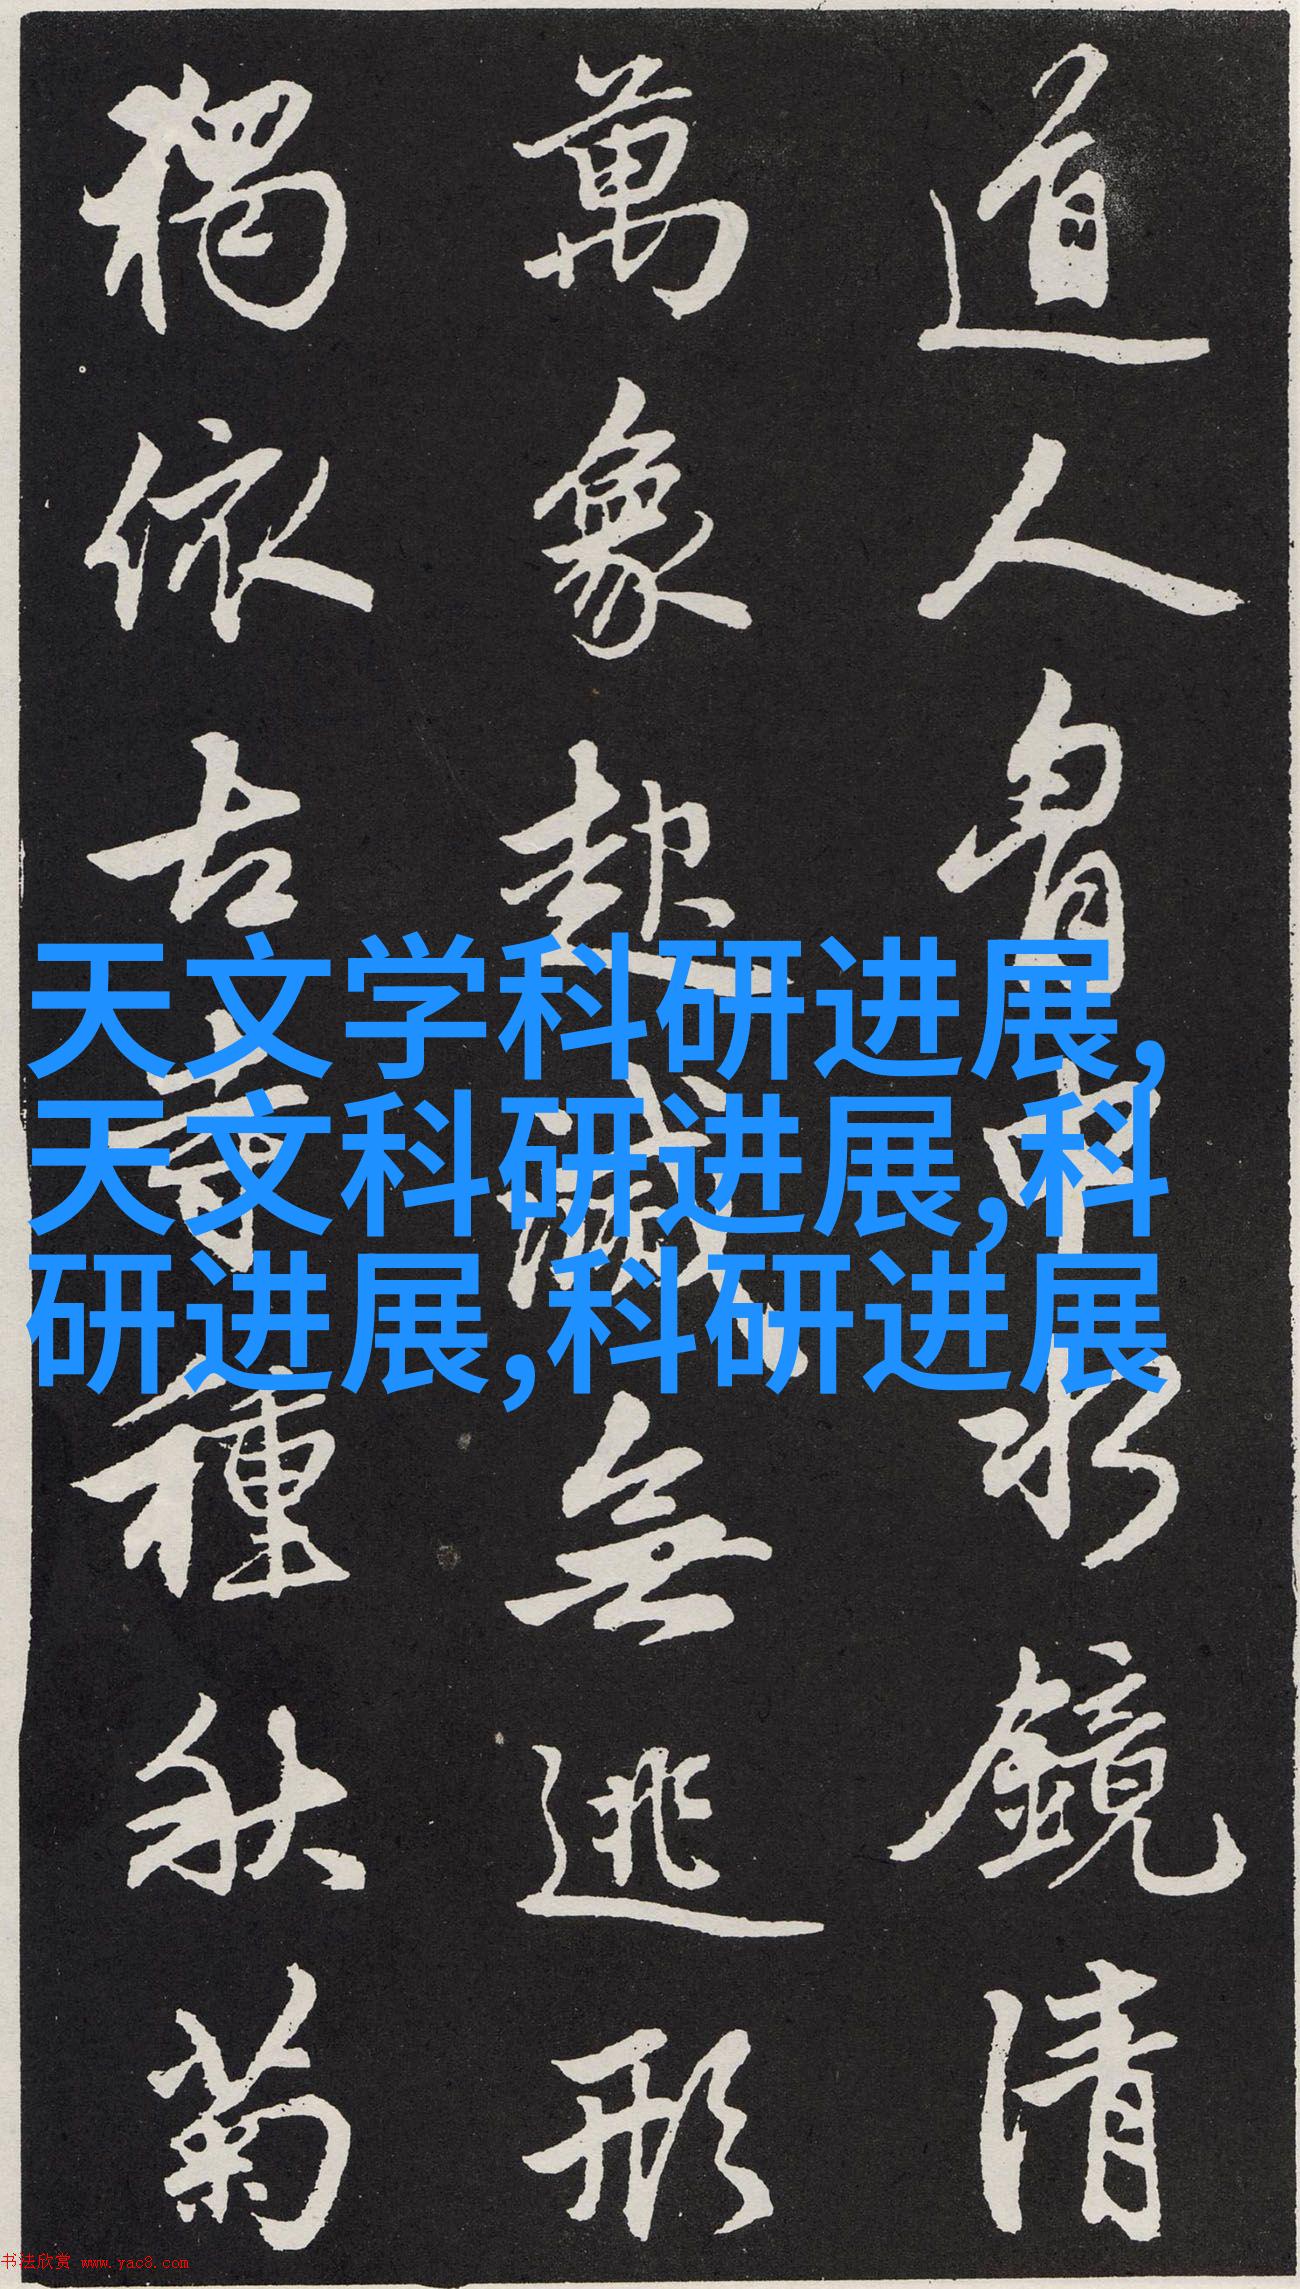 道人胷中水鏡清
萬象起滅無逃形
獨依古寺種秋菊
天文学科研进展,
天文科研进展,科
研进展,科研进展
书法欣赏 www.yac8.com